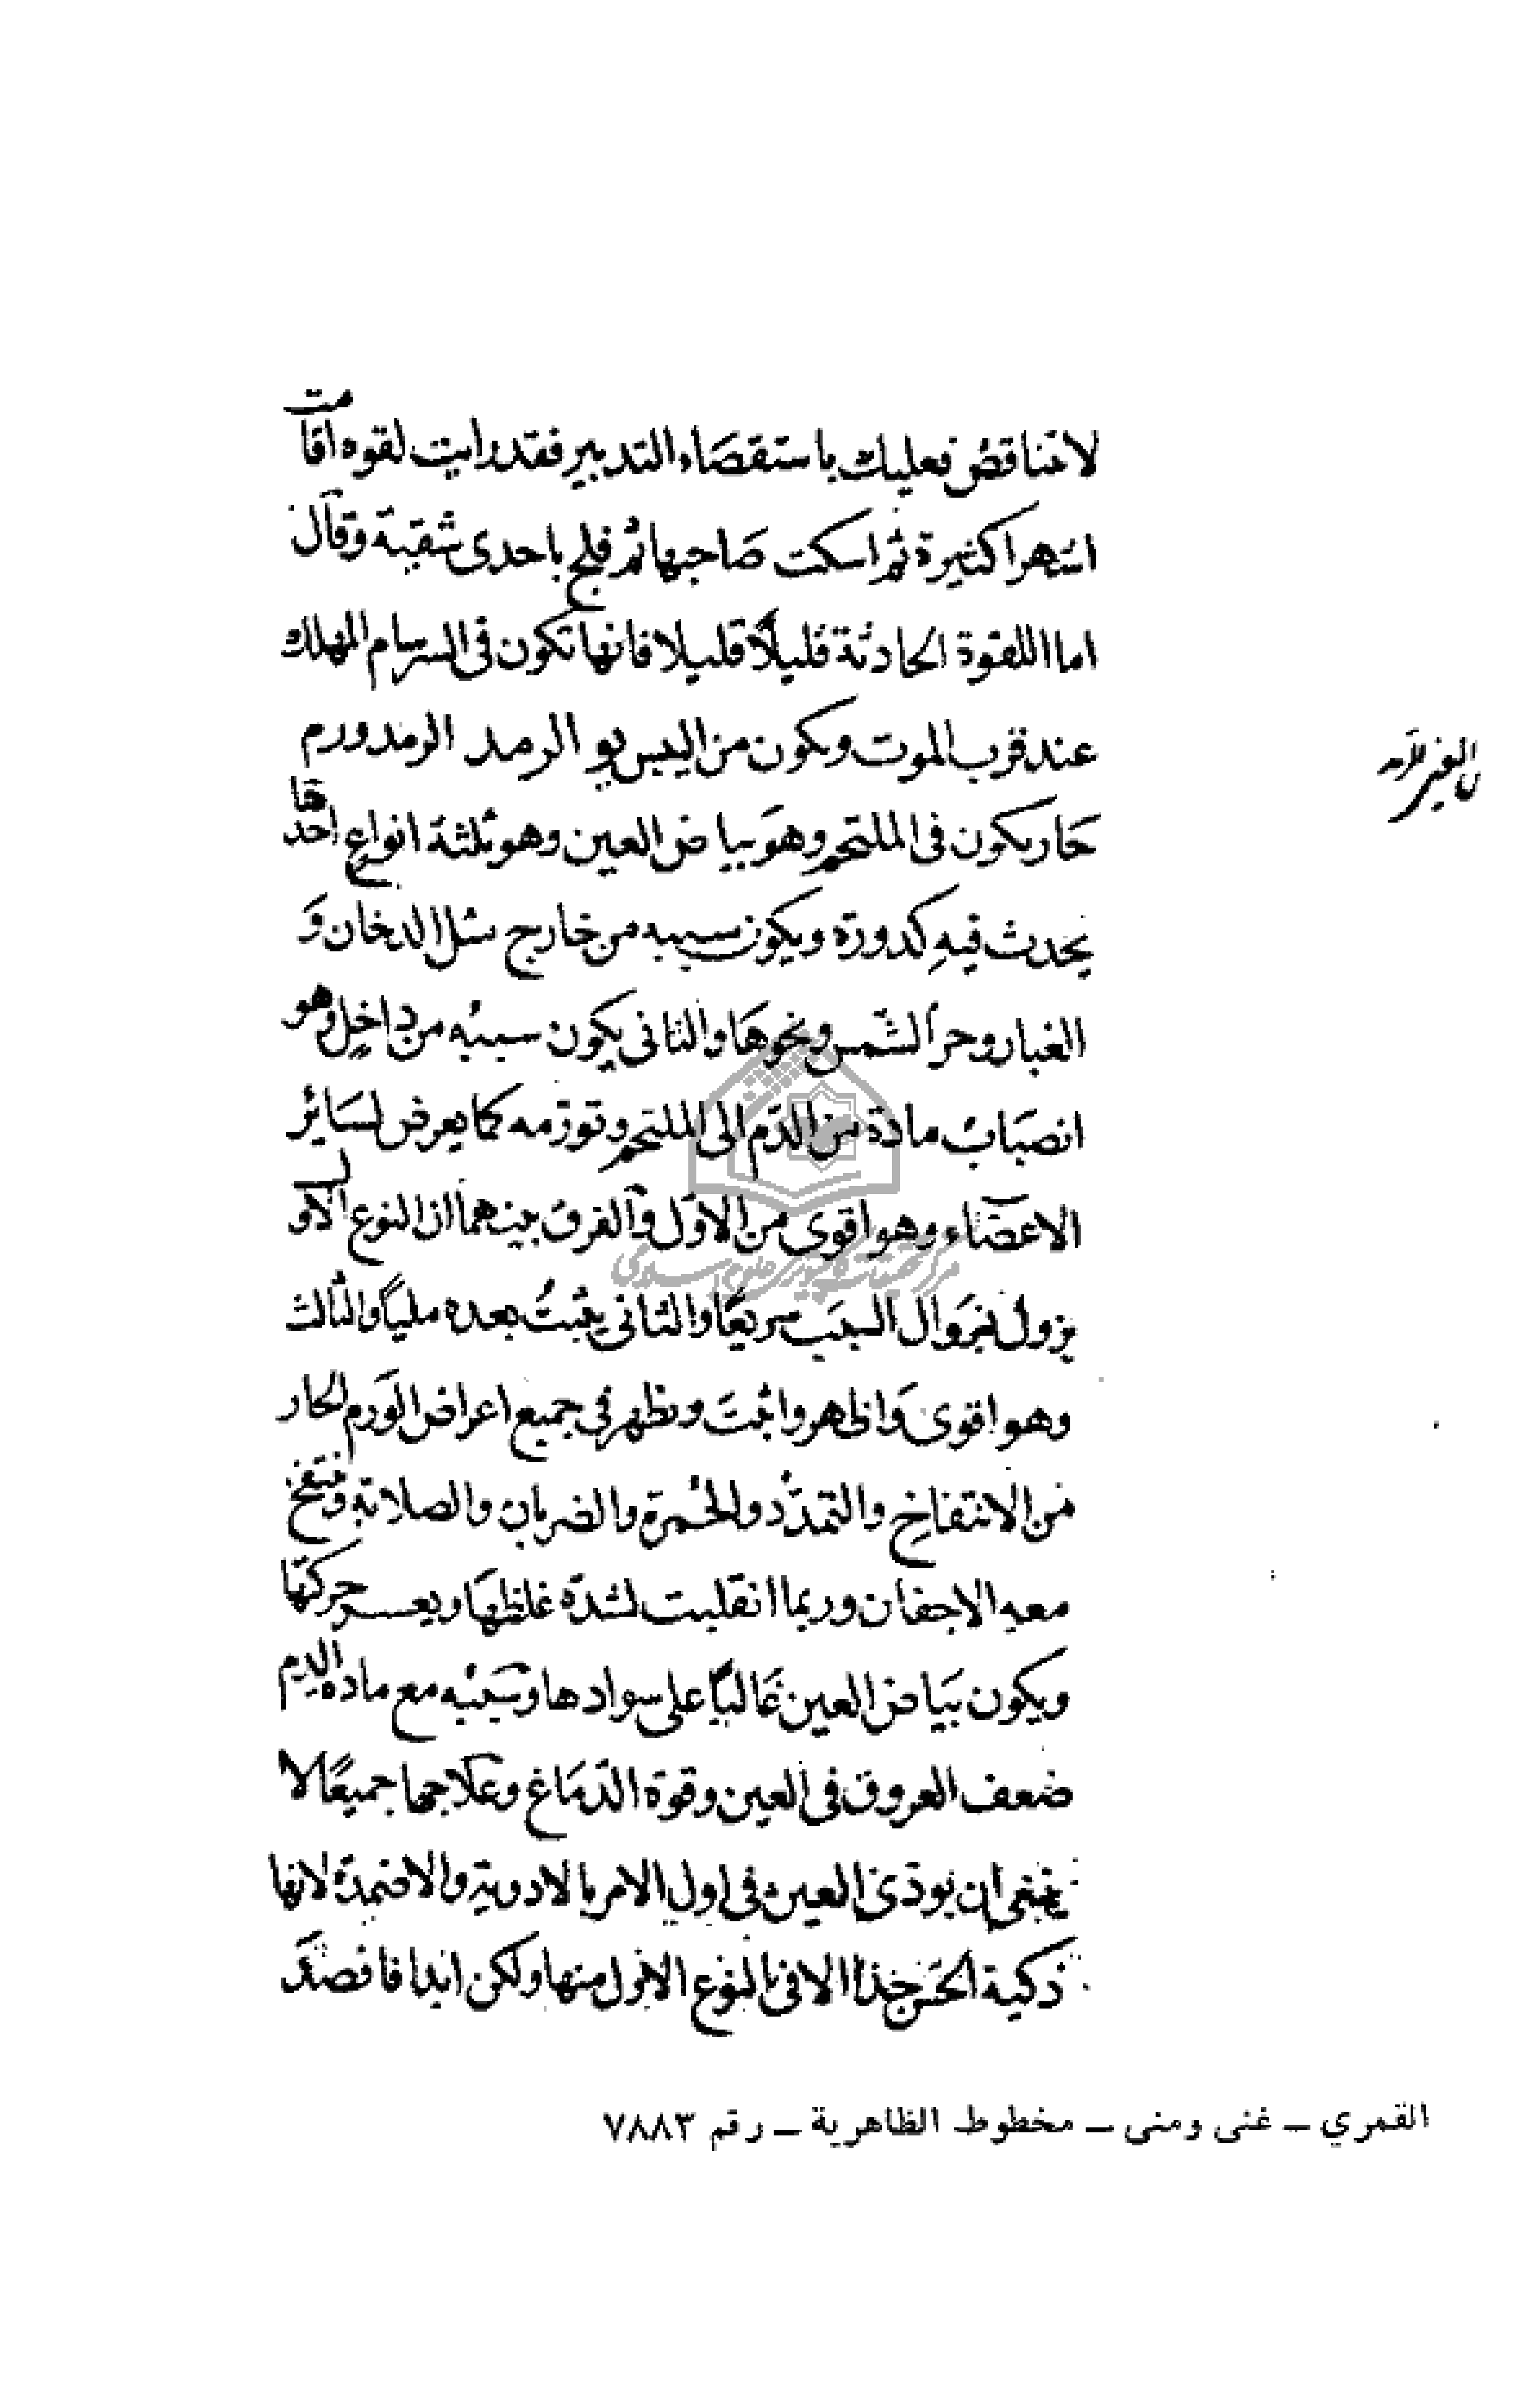 لا تتناقض فعليك باستقصاء التدبير فقد رايت لقوه اقامت
اشهرا كثيرة ثم اسكت صاحبها ثم فلج باحدى شقيه وقال
اما اللقوة الحادثة قليلا قليلا فانها تكون فى السرسام المهلك
عند قرب الموت ويكون من اليبس الرمد الرمد ورم
حار يكون فى الملتحم وهو بياض العين وهو ثلثة انواع احدها
يحدث فيه كدورة ويكون سببه من خارج مثل الدخان و
الغبار وحر الشمس ونحوها والثانى يكون سببه من داخل وهو
انصباب مادة من الدم الى الملتحم وتورمه كما يعرض لسائر
الاعضاء وهو اقوى من الاول والفرق بينهما ان النوع الاول
يزول بزوال السبب سريعا والثانى يثبت بعده مليا والثالث
وهو اقوى واظهر واثبت ويظهر فى جميع اعراض الورم الحار
من الانتفاخ والتمدد والحمرة والضربان والصلابة وينتفخ
معه الاجفان وربما انقلبت لشدة غلظها ويعسر حركتها
ويكون بياض العين غالبا على سوادها وسببه مع مادة الدم
ضعف العروق فى العين وقوة الدماغ وعلاجها جميعا لا
ينبغى ان يوذى العين فى اول الامر بالادوية والاضمدة لانها
ذكية الحس جذا الا فى النوع الاول منها ولكن ابدا فافصد
القمري ــ غنى ومنى ــ مخطوط الظاهرية ــ رقم ٧٨٨٣